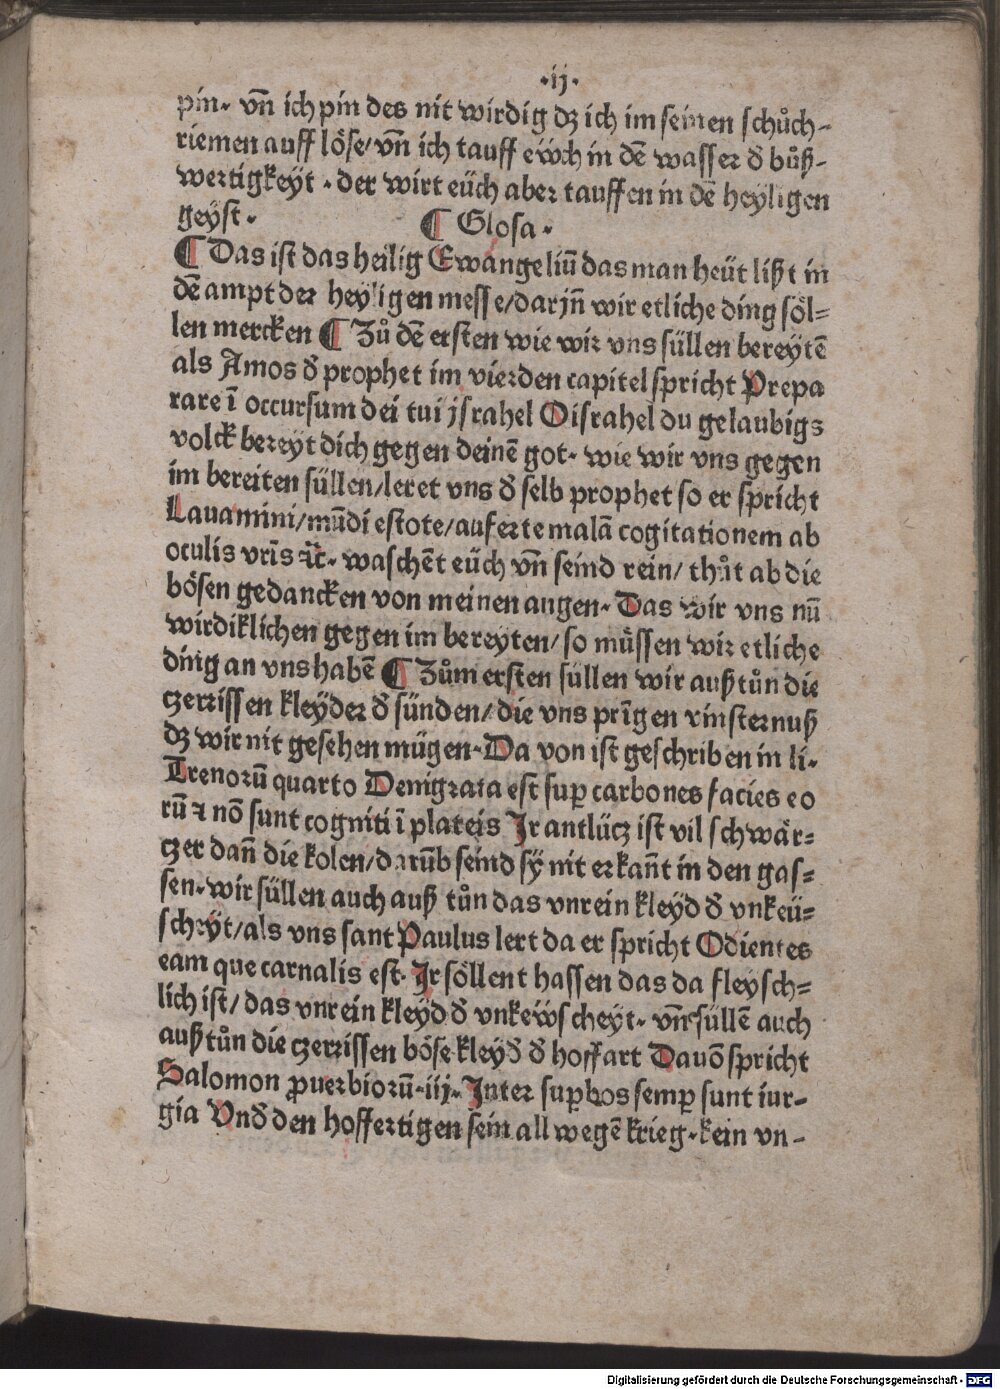 ·ij·
pin· vn̄ ich pin des nit wirdig dꝫ ich im seinen schůch-
riemen auff löse/ vn̄ ich tauff ewch in dē wasser đ bůß-
wertigkeyt · der wirt eüch aber tauffen in dē heyligen
geyst · ¶ Glosa ·
¶ Das ist das heilig Ewangeliū das man heüt lißt in
dē ampt der heyligen messe/darjn̄ wir etliche ding söl=
len mercken ¶ Zů dē ersten wie wir vns süllen bereytē
als Amos đ prophet im vierden capitel spricht Prepa
rare ī occursum dei tui jsrahel O israhel du gelaubigs
volck bereyt dich gegen deinē got· wie wir vns gegen
im bereiten süllen/leret vns đ selb prophet so er spricht
Lauamini/mūdi estote/auferte malā cogitationem ab
oculis vr̄is ⁊c̄· waschēt eüch vn̄ seind rein/ thůt ab die
bösen gedancken von meinen augen· Das wir vns nū
wirdiklichen gegen im bereyten/so müssen wir etliche
ding an vns habē ¶ Zům ersten süllen wir auß tůn die
czerrissen kleyder đ sünden/die vns prīgen vinsternuß
dꝫ wir nit gesehen mügen·Da von ist geschriben in li·
Trenorū quarto Denigrata est suꝑ carbones facies eo
rū ⁊ nō sunt cogniti ī plateis Ir antlücz ist vil schwär=
czer dan̄ die kolen/darūb seind sy nit erkan̄t in den gas=
sen·wir süllen auch auß tůn das vnrein kleyd đ vnkeü=
scheyt/als vns sant Paulus lert da er spricht Odientes
eam que carnalis est· Ir söllent hassen das da fleysch=
lich ist/ das vnrein kleyd đ vnkewscheyt· vn̄ süllē auch
auß tůn die czerrissen böse kleyđ đ hoffart Dauō spricht
Salomon ꝓuerbiorū·iij· Inter suꝑbos semꝑ sunt iur-
gia Vnđ den hoffertigen sein all wegē krieg·kein vn-
Digitalisierung gefördert durch die Deutsche Forschungsgemeinschaft - DFG